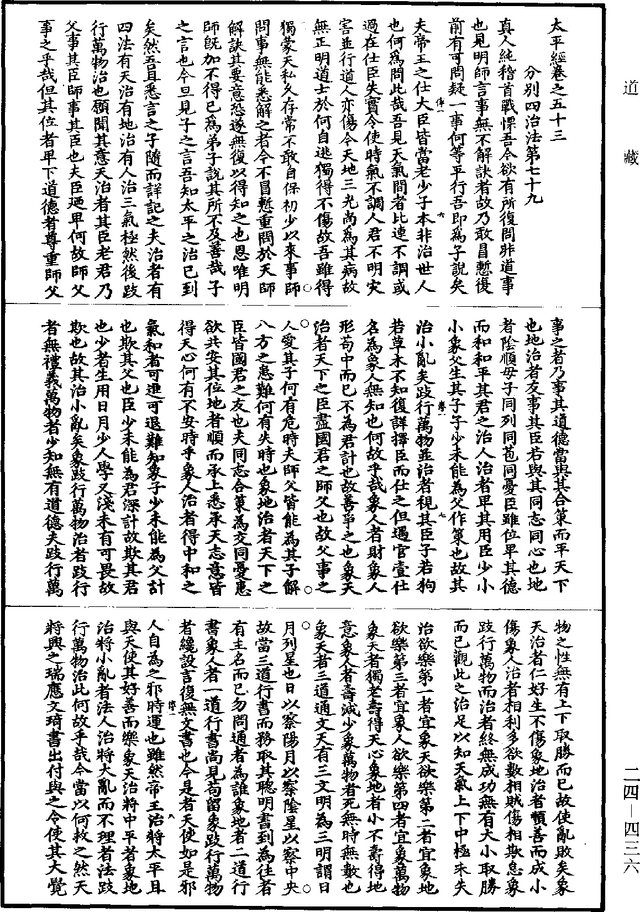 道藏
太平經卷之五十三
分別四治法第七十九
真人純稽首戰慄吾今欲有所復問非道事
也見明師言事無不解訣者故乃敢冒慙復
前有可問疑一事何等平行吾即爲子說矣
夫帝王之仕大臣皆當老少子本非治世人
也何爲問此哉吾見天氣間者比連不調或
過在仕臣失實令使時氣不調人君不明灾
害並行道人亦傷今天地三光尚爲其病故
無正明道士於何自逃獨得不傷故吾雖得
獨蒙天私久存常不敢自保初少以來事師
問事無能悉解之者今不冒慙重問於天師
解訣其要意恐遂無復以得知之也恩唯明
師既加不得已爲弟子說其所不及善哉子
之言也今旦見子之言吾知太平之治已到
矣然吾且悉言之子隨而詳記之夫治者有
四法有天治有地治有人治三氣極然後跂
行萬物治也願聞其意天治者其臣老君乃
父事其臣師事其臣也夫臣廼卑何故師父
事之乎哉但其位者卑下道德者尊重師父
事之者乃事其道德當與其合策而平天下
也地治者友事其臣若與其同志同心也地
者陰順母子同列同苞同憂臣雖位卑其德
而和和平其君之治人治者卑其用臣少小
小象父生其子子少未能爲父作策也故其
治小亂矣跂行萬物並治者視其臣子若狗
若草木不知復詳擇臣而仕之但遇官壹仕
名爲象人無知也何故乎哉象人者財象人
形苟中而已不爲君計也故善爭之也象天
治者天下之臣盡國君之師父也故父事之
人愛其子何有危時夫師父皆能爲其子解
八方之患難何有失時也象地治者天下之
臣皆國君之友也夫同志合策爲交同憂患
欲共安其位地者順而承上悉承天志意皆
得天心何有不安時乎象人治者得中和之
氣和者可進可退難知象子少未能爲父計
也欺其父也臣少未能爲君深計故欺其君
也少者生用日月少人學又淺未有可畏故
欺也故其治小亂矣象跂行萬物治者跂行
者無禮義萬物者少知無有道德夫跂行萬
物之性無有上下取勝而已故使亂敗矣象
天治者仁好生不傷象地治者順善而成小
傷象人治者相利多欲數相賊傷相欺怠象
跂行萬物而治者終無成功無有大小取勝
而已觀此之治足以知天氣上下中極未失
治欲樂第一者宜象天欲樂第二者宜象地
欲樂第三者宜象人欲樂第四者宜象萬物
象天者獨老壽得天心象地者小不壽得地
意象人者壽減少象萬物者死無時無數也
象天者三道通文天有三文明爲三明謂日
月列星也日以察陽月以察陰星以察中央
故當三道行書而務取其聰明書到爲往者
有主名而已勿問通者爲誰象地者二道行
書象人者一道行書尚見苟留象跂行萬物
者纔設言復無文書也今是者天使如是邪
人自爲之邪時運也雖然帝王治將太平且
與天使其好善而樂象天治將中平者象地
治將小亂者法人治將大亂而不理者法跂
行萬物治此何故乎哉今當以何救之然天
將興之瑞應文琦書出付與之令使其大覺
二四—四三六